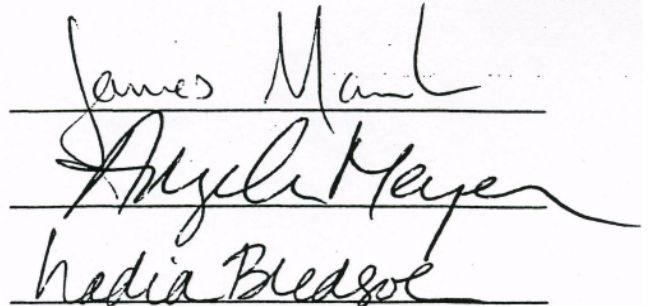 James
Angela Meyer
Nadia Bledsoe